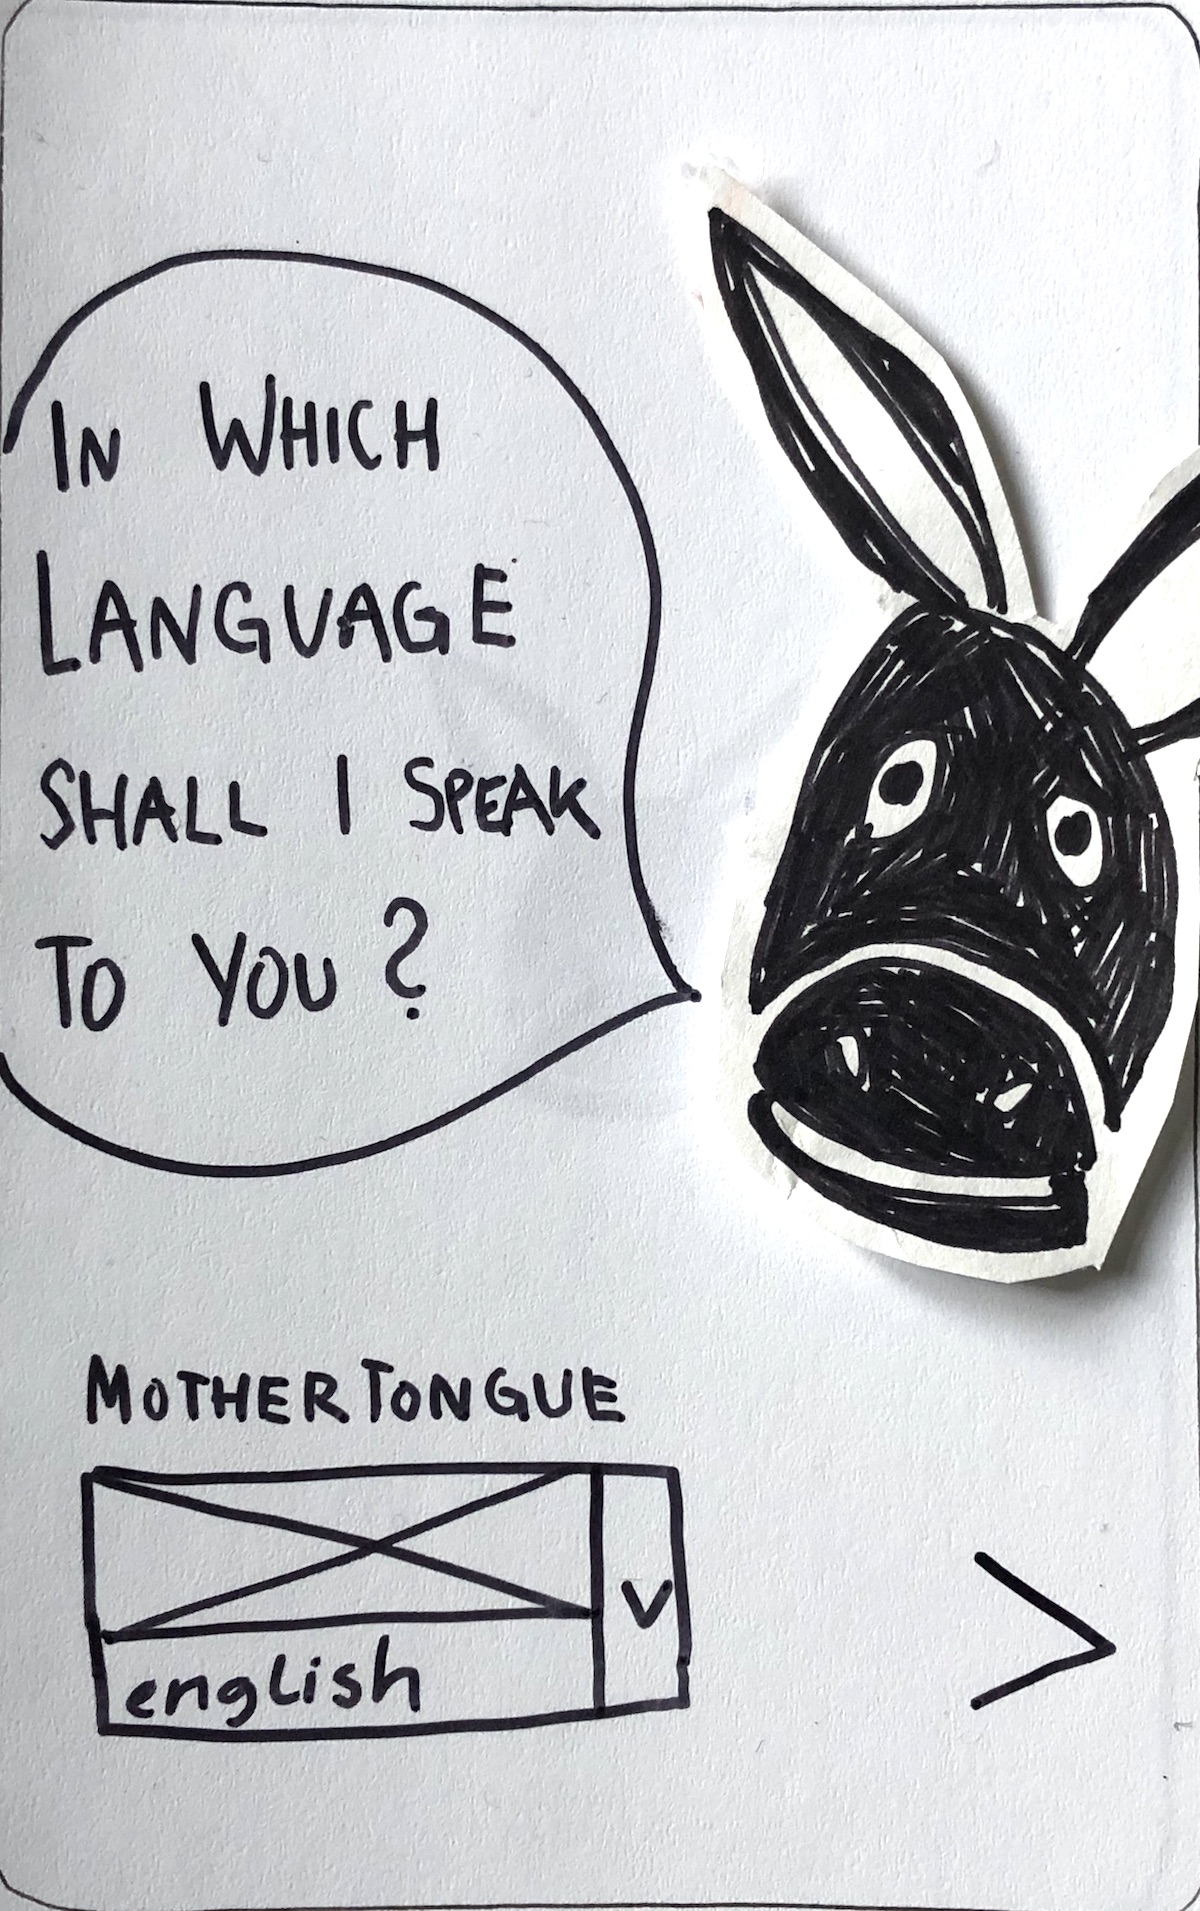 IN WHICH
LANGUAGE
SHALL I SPEAK
TO YOU?
MOTHERTONGUE
V
english
>